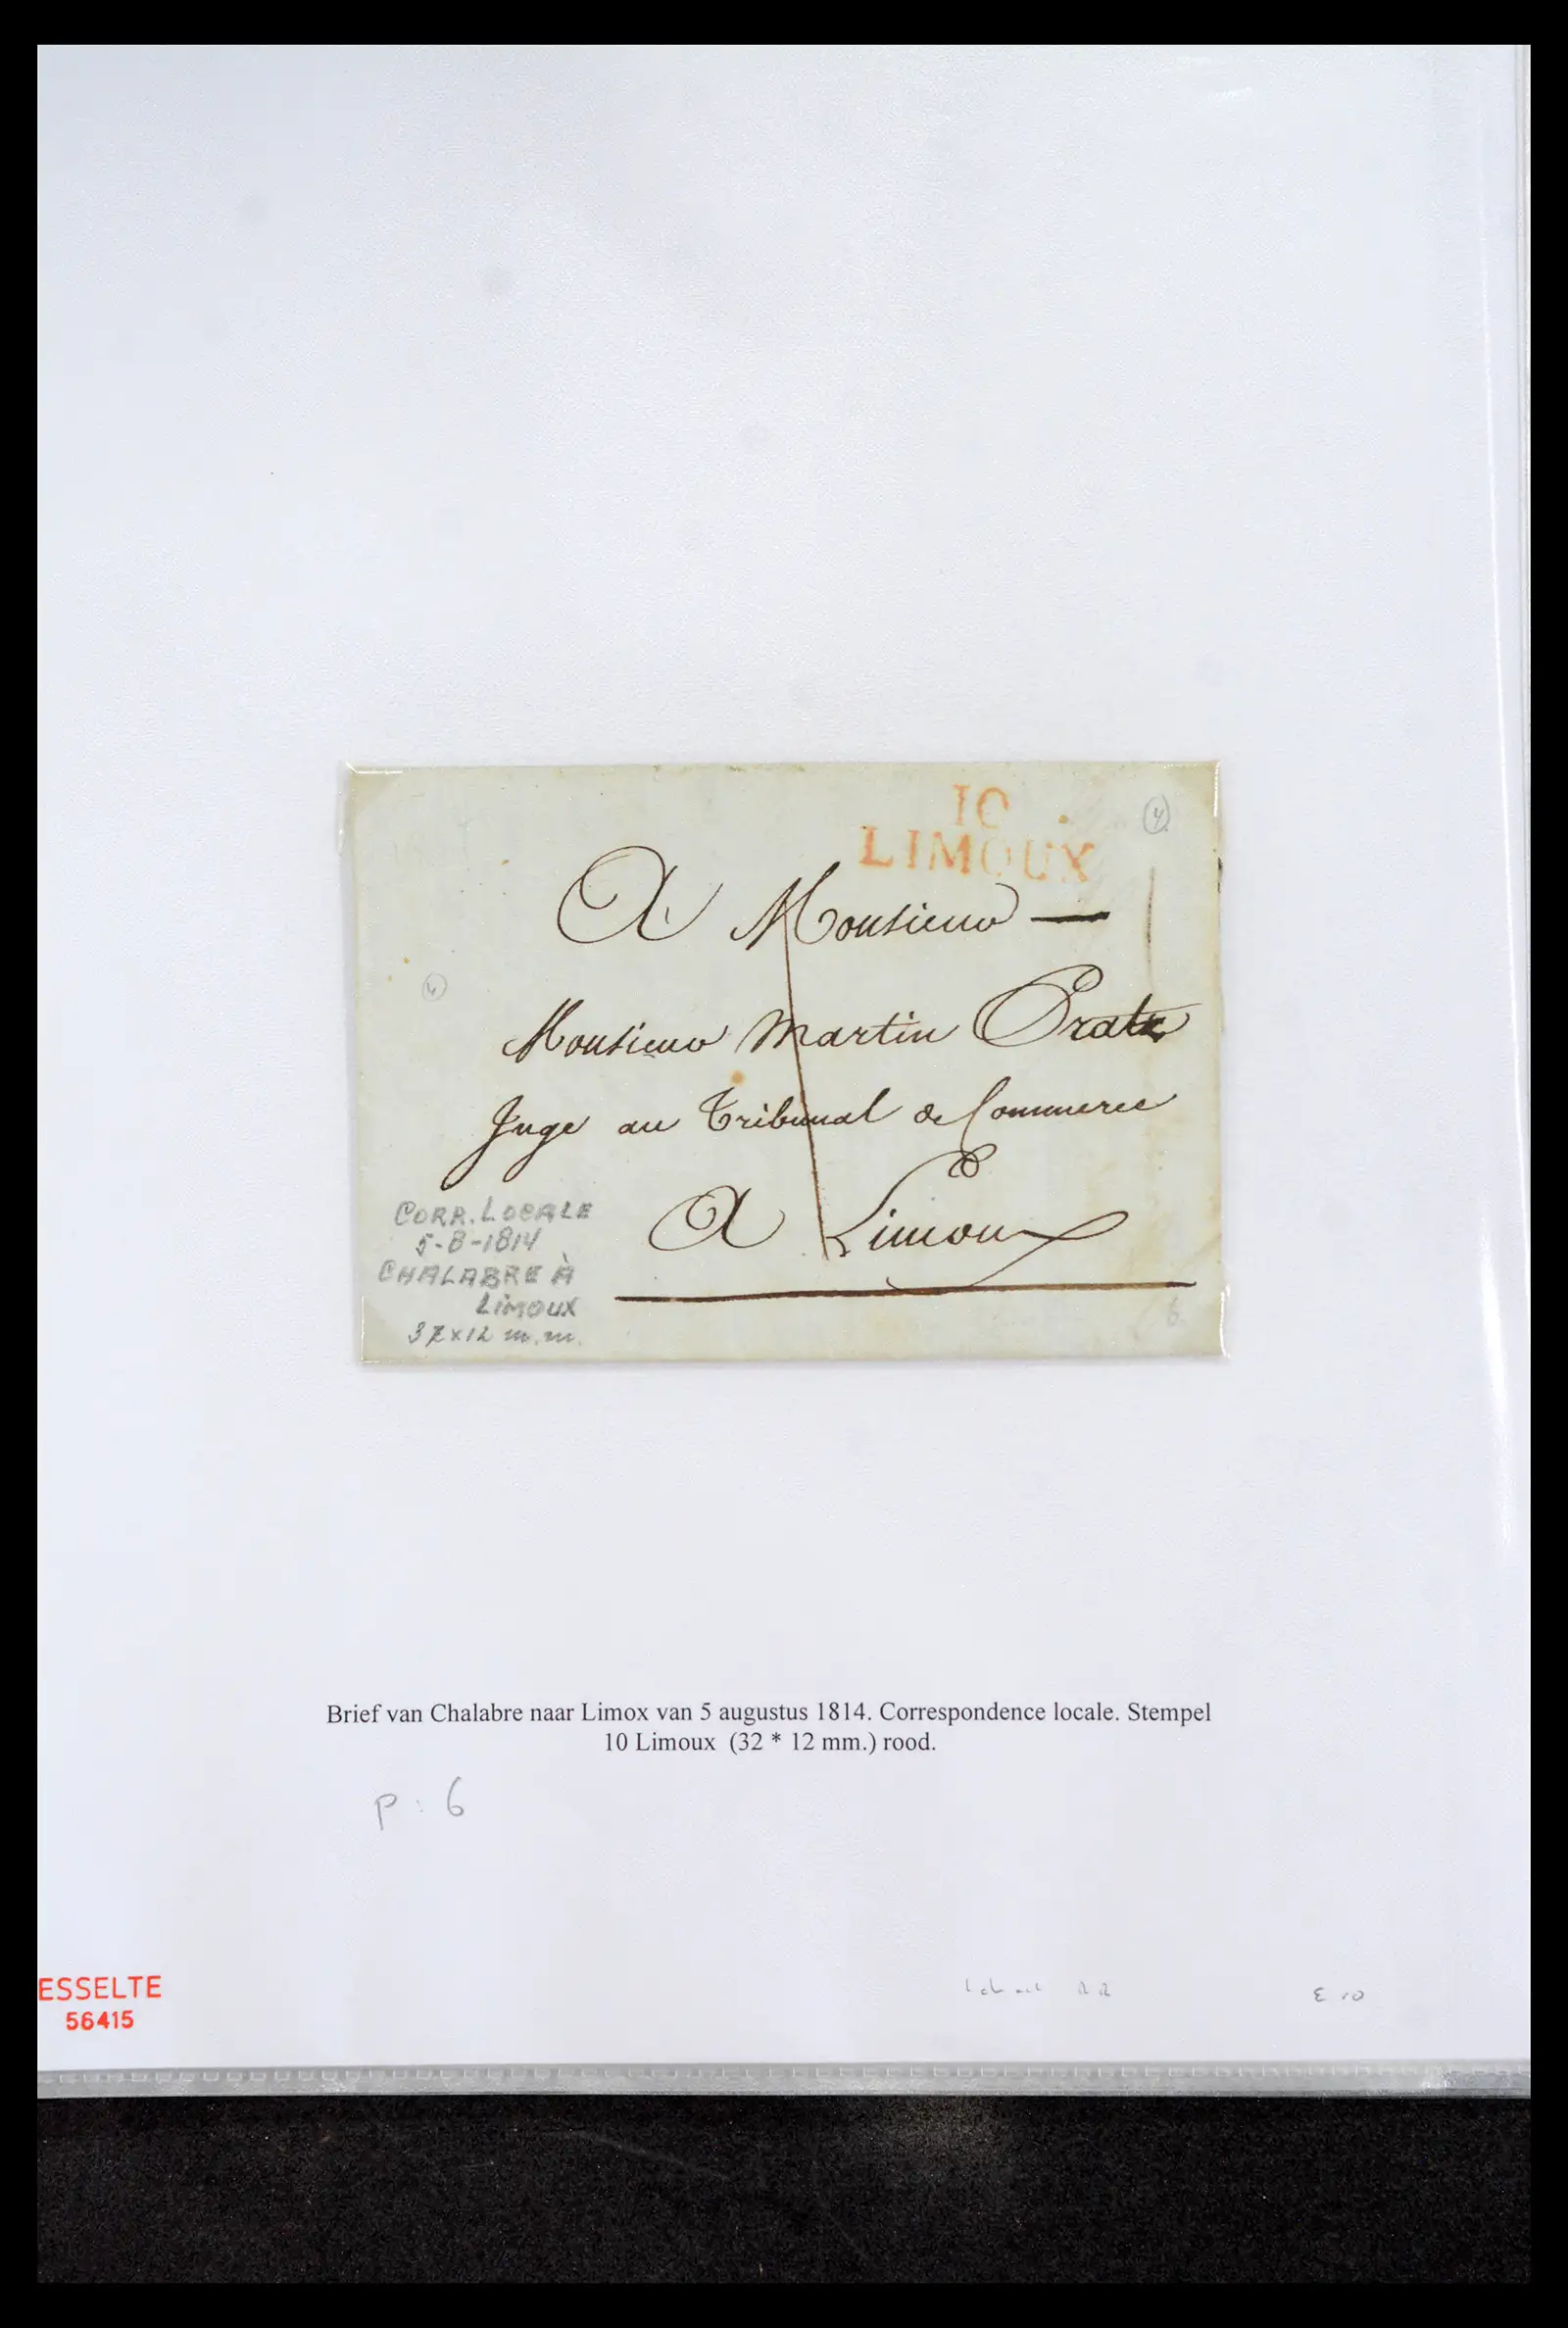 10
LIMOUX
4
A Monsieur
4
Monsieur Martin Prats
Juge au Tribunal de Commerce
A Limoux
CORR. LOCALE
5-8-1814
CHALABRE À
LIMOUX
32x12 m.m.
6
Brief van Chalabre naar Limox van 5 augustus 1814. Correspondence locale. Stempel
10 Limoux (32 * 12 mm.) rood.
p: 6
ESSELTE
56415
RR
€ 10